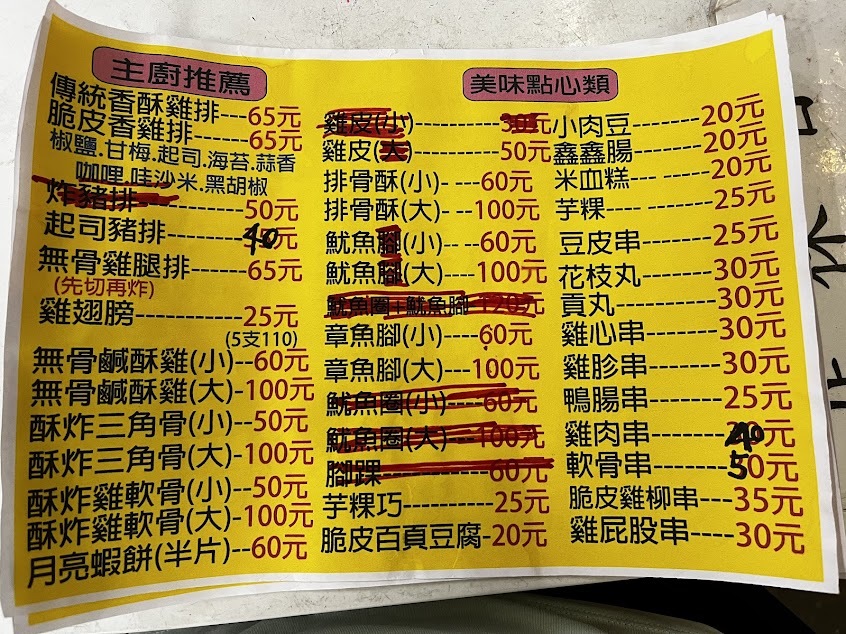 主廚推薦
傳統香酥雞排---65元
脆皮香雞排------65元
椒鹽.甘梅.起司.海苔.蒜香
咖哩.哇沙米.黑胡椒
炸豬排-----------50元
起司豬排--------40元
無骨雞腿排------65元
(先切再炸)
雞翅膀------------25元
(5支110)
無骨鹹酥雞(小)--60元
無骨鹹酥雞(大)-100元
酥炸三角骨(小)--50元
酥炸三角骨(大)-100元
酥炸雞軟骨(小)--50元
酥炸雞軟骨(大)-100元
月亮蝦餅(半片)--60元
美味點心類
雞皮(小)----------30元
雞皮(大)----------50元
排骨酥(小)- ---60元
排骨酥(大)- ---100元
魷魚腳(小)-- --60元
魷魚腳(大)----100元
魷魚圈+魷魚腳-120元
章魚腳(小)----60元
章魚腳(大)---100元
魷魚圈(小)----60元
魷魚圈(大)---100元
腳踝------------60元
芋粿巧----------25元
脆皮百頁豆腐-20元
小肉豆--------20元
鑫鑫腸--------20元
米血糕--- ---20元
芋粿---- -----25元
豆皮串--------25元
花枝丸--------30元
貢丸-----------30元
雞心串--------30元
雞胗串--------30元
鴨腸串--------25元
雞肉串--------40元
軟骨串--------50元
脆皮雞柳串---35元
雞屁股串-----30元